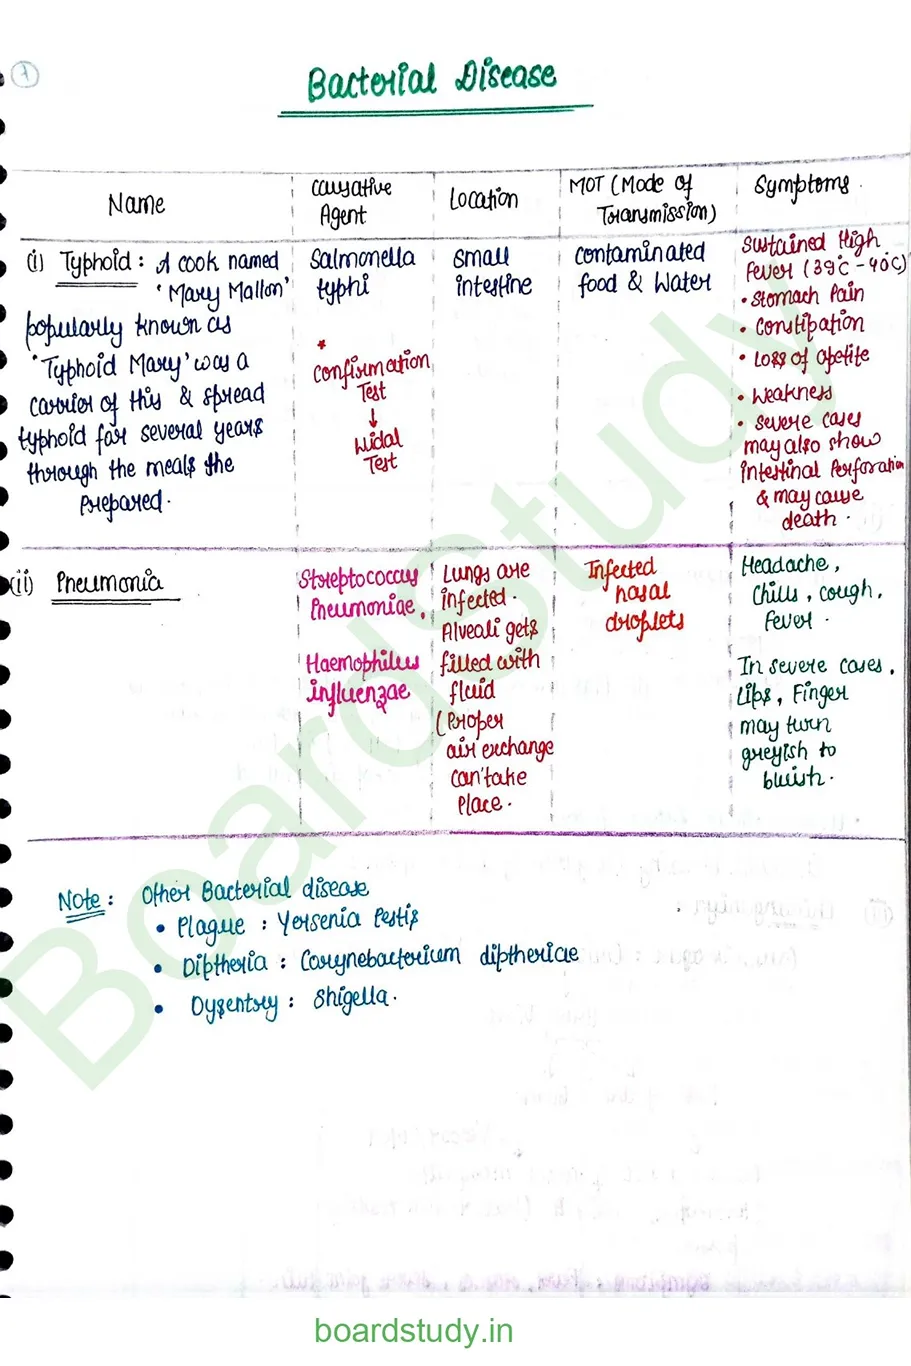 7
Bacterial Disease
Name
Causative
Agent
Location
MOT (Mode of
Transmission)
Symptoms.
(i) Typhoid : A cook named
'Mary Mallon'
popularly known as
'Typhoid Mary' was a
carrier of this & spread
typhoid for several years
through the meals the
prepared.
Salmonella
typhi
*
Confirmation
Test
↓
Widal
Test
Small
intestine
Contaminated
food & Water
Sustained High
Fever (39°C - 40°C)
• Stomach Pain
• Constipation
• Loss of apetite
• Weakness
• Severe cases
may also show
intestinal Perforation
& may cause
death.
(ii) Pneumonia
Streptococcus
Pneumoniae,
Haemophilus
influenzae
Lungs are
infected.
Alveoli gets
filled with
fluid
(Proper
air exchange
can't take
Place.
Infected
nasal
droplets
Headache,
Chills, cough,
Fever.
In severe cases,
Lips, Finger
may turn
greyish to
bluish.
Note : Other Bacterial disease
• Plague : Yersenia Pestis
• Diptheria : Corynebacterium diptheriae
• Dysentry : Shigella.
BoardStudy
boardstudy.in